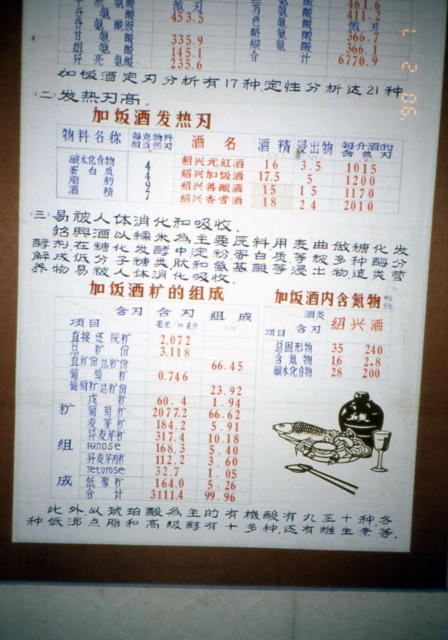 453.5 461.6
411.2
335.9 366.7
145.1 366.1
235.6 计 6770.9
加饭酒定刃分析有17种,定性分析达21种
二、发热刃高.
加饭酒发热刃
物料名称 每克物料相当热刃 酒名 酒精 浸出物 每斤酒的含热刃
碳水化合物 4 绍兴元紅酒 16 3.5 1015
蛋白质 4 绍兴加饭酒 17.5 5 1200
脂肪 9 绍兴善酿酒 15 15 1170
酒精 7 绍兴香雪酒 18 24 2010
三、易被人体消化和吸收.
绍興酒以糯米為主要原料用麦曲做糖化发
酵剂在糖化发酵中淀粉蛋白质等被多种酶分
解成低分子糖类肽和氨基酸等浸出物這类营
养物易被人体消化吸收.
加饭酒粆的组成
含刃 含刃 组成
項目
直接还沅粆 2.072
总粆份 3.118
66.45
葡萄粆 0.746
葡萄粆总粆份 23.92
粆组成
戊粆 60.4 1.94
葡萄粆 2077.2 66.62
麦芽粆 184.2 5.91
异麦芽粆 317.4 10.18
panose 168.3 5.40
112.2 3.60
32.7 1.05
低聚粆 164.0 5.26
合计 3111.4 99.96
加饭酒内含氮物
酒类 绍兴酒
項目 含刃
总固形物 35 240
含氮物 16 2.8
碳水化合物 28 200
此外,从琥珀酸為主的有機酸有九至十种,各
种低沸点脂和高級醇有十多种,还有维生素等.
7 2 '96